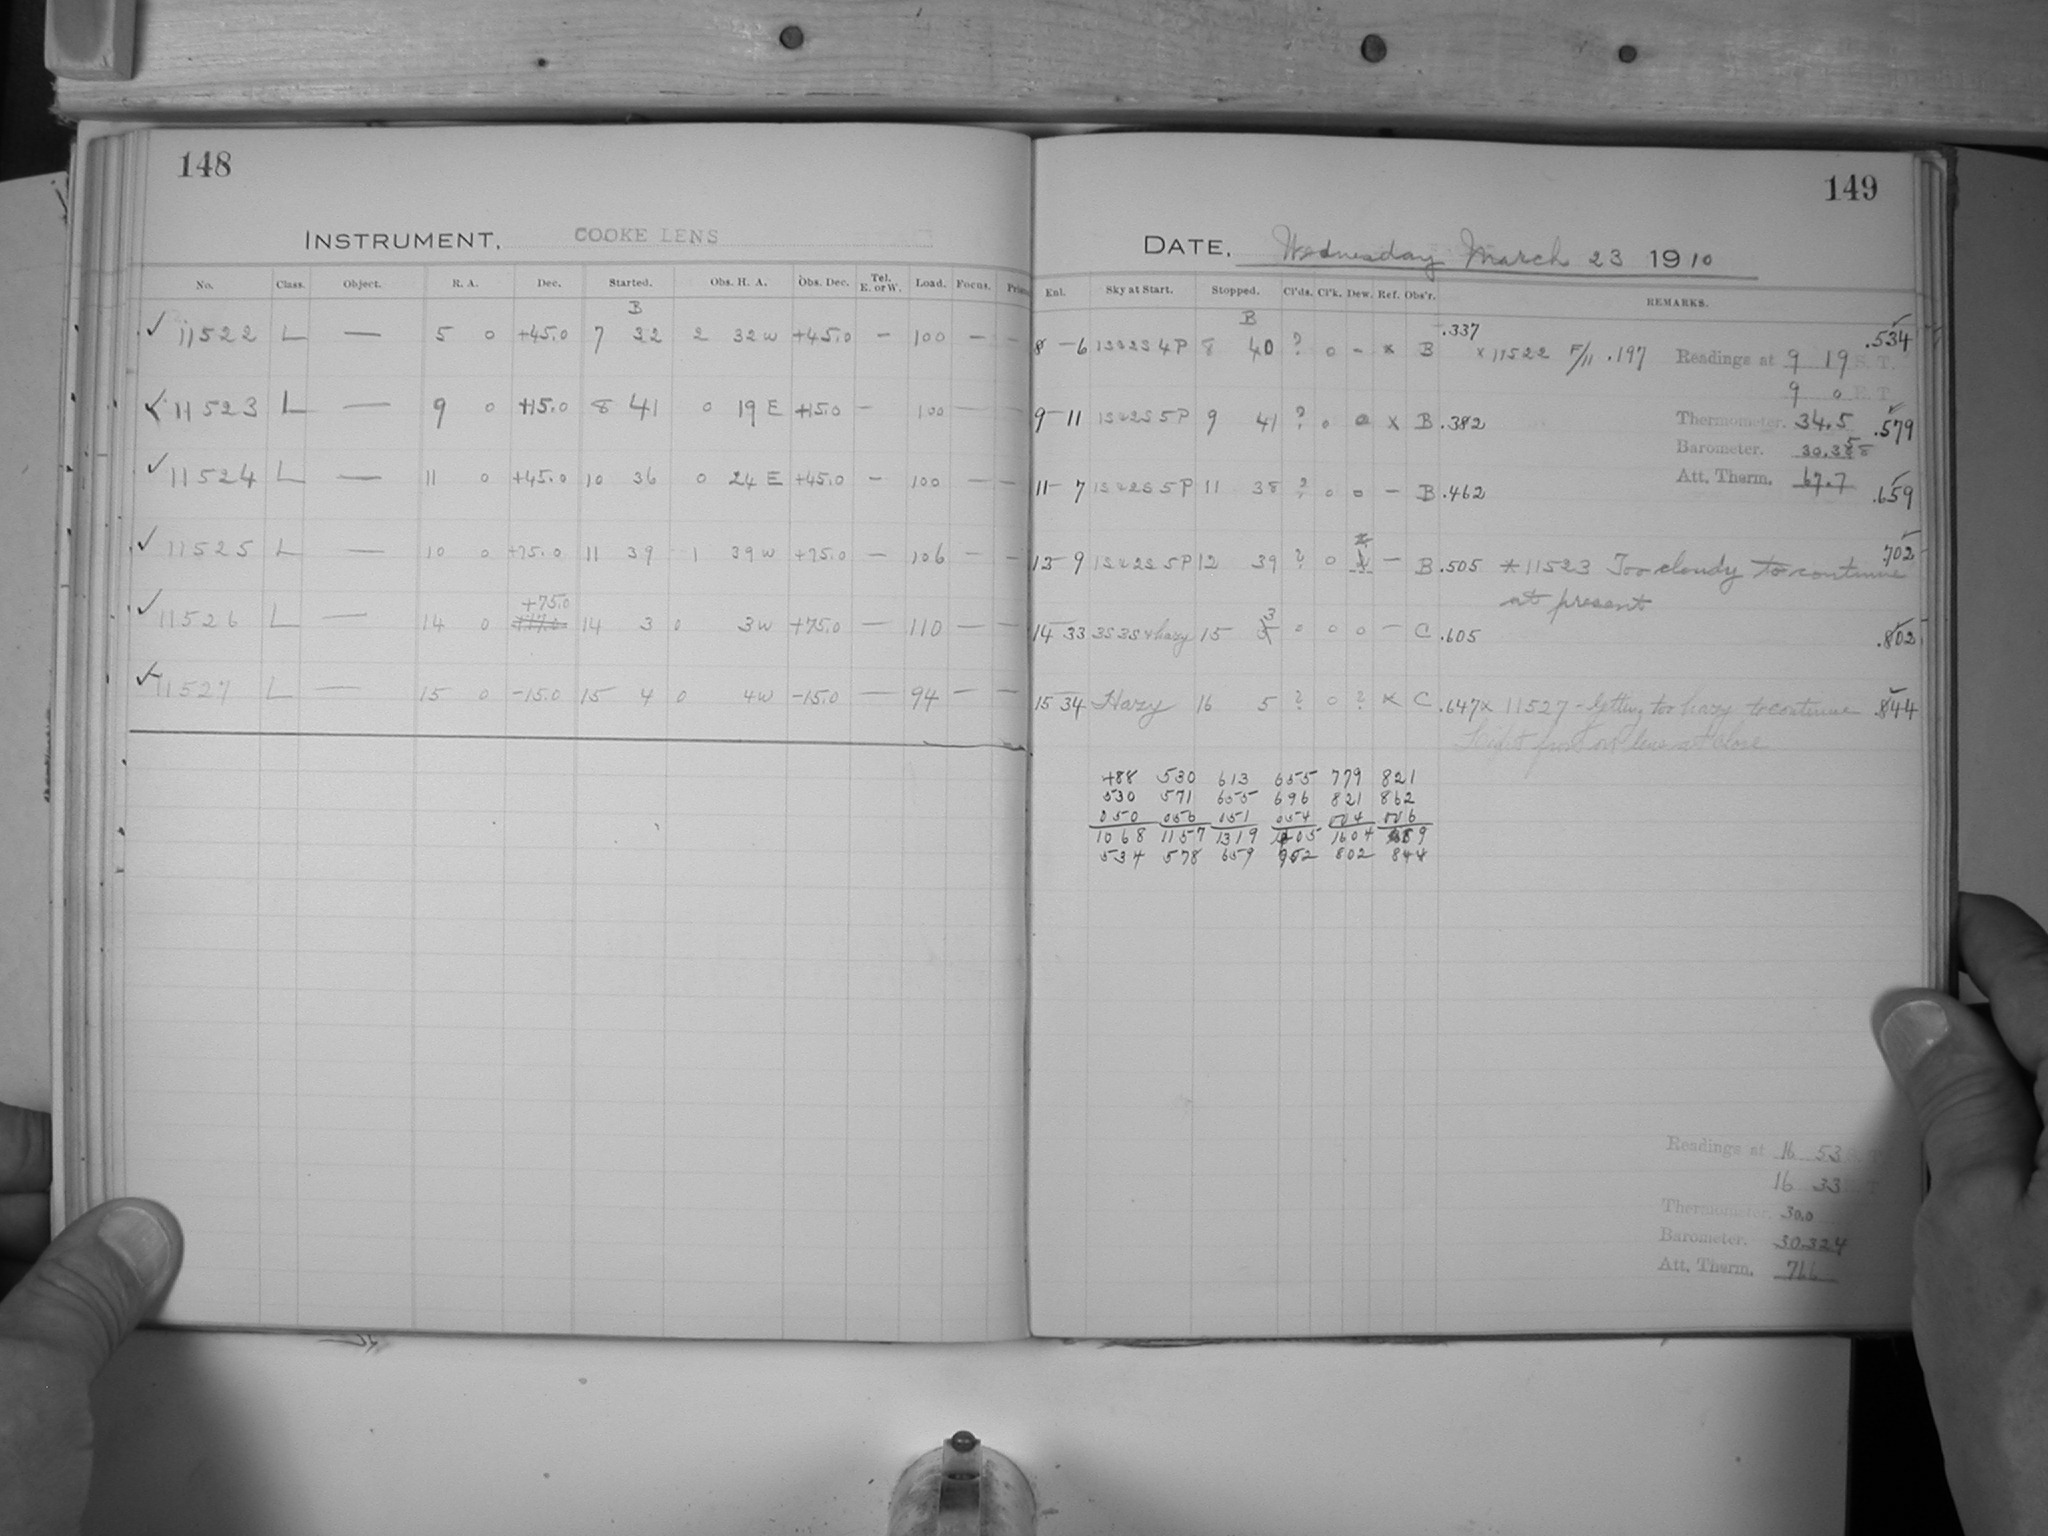 148
INSTRUMENT. COOKE LENS
No. Class. Object. R. A. Dec. Started. Obs. H. A. Obs. Dec. Tel. E. or W. Load. Focus.
B
✓ 11522 L — 5 0 +45.0 7 32 2 32 w +45.0 — 100 —
✓ 11523 L — 9 0 +15.0 8 41 0 19 E +15.0 — 100 — —
✓ 11524 L — 11 0 +45.0 10 36 0 24 E +45.0 — 100 — —
✓ 11525 L — 10 0 +75.0 11 39 1 39 w +75.0 — 106 — —
+75.0
✓ 11526 L — 14 0 14 3 0 3 w +75.0 — 110 — —
✓ 11527 L — 15 0 -15.0 15 4 0 4 w -15.0 — 94 — —
149
DATE. Wednesday March 23 1910
Enl. Sky at Start. Stopped. Cl'ds. Cl'k. Dew. Ref. Obs'r. REMARKS.
B
8 -6 1S&2S 4P 8 40 ? 0 - x B .337 x 11522 F/11 .197 .534
Readings at 9 19 S. T.
9 0 R. T.
9-11 1S&2S 5P 9 41 ? 0 0 x B .382 .579
Thermometer. 34.5
Barometer.
Att. Therm. 67.7
11- 7 1S&2S 5P 11 38 ? 0 0 — B .462 .659
13- 9 1S&2S 5P 12 39 ? 0 — B .505 * 11523 Too cloudy to continue .702
at present
14 33 3S3S & hazy 15 3 0 0 0 — C .605 .802
15 34 Hazy 16 5 ? 0 ? x C .647 x 11527 - Getting too hazy to continue .844
at close
488 530 613 655 779 821
530 571 655 696 821 862
050 056 051 054 004 006
1068 1157 1319 1405 1604 1689
534 578 659 802 844
Readings at 16 53 S. T.
16 33
Thermometer. 30.0
Barometer. 30.324
Att. Therm. 76.6